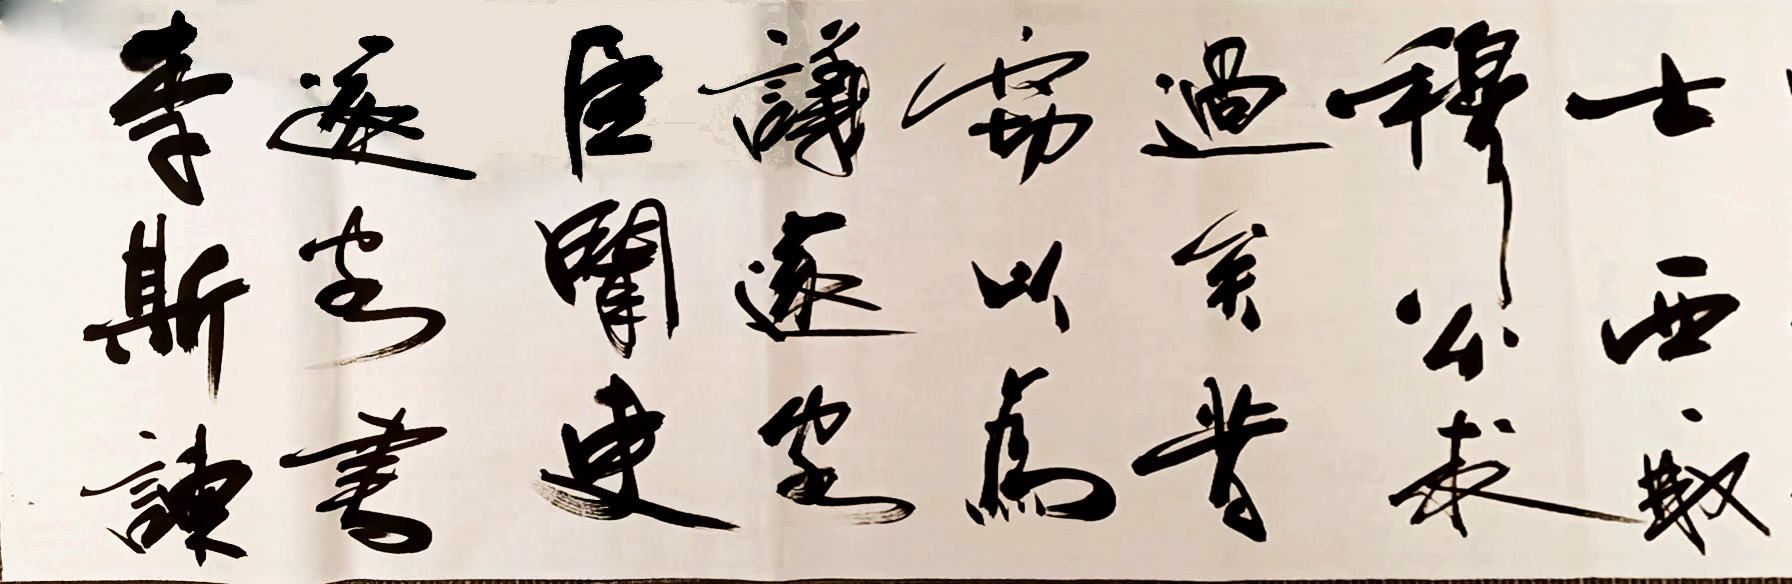 李斯諫
逐客書
臣聞吏
議逐客
窃以為
過矣昔
穆公求
士西取